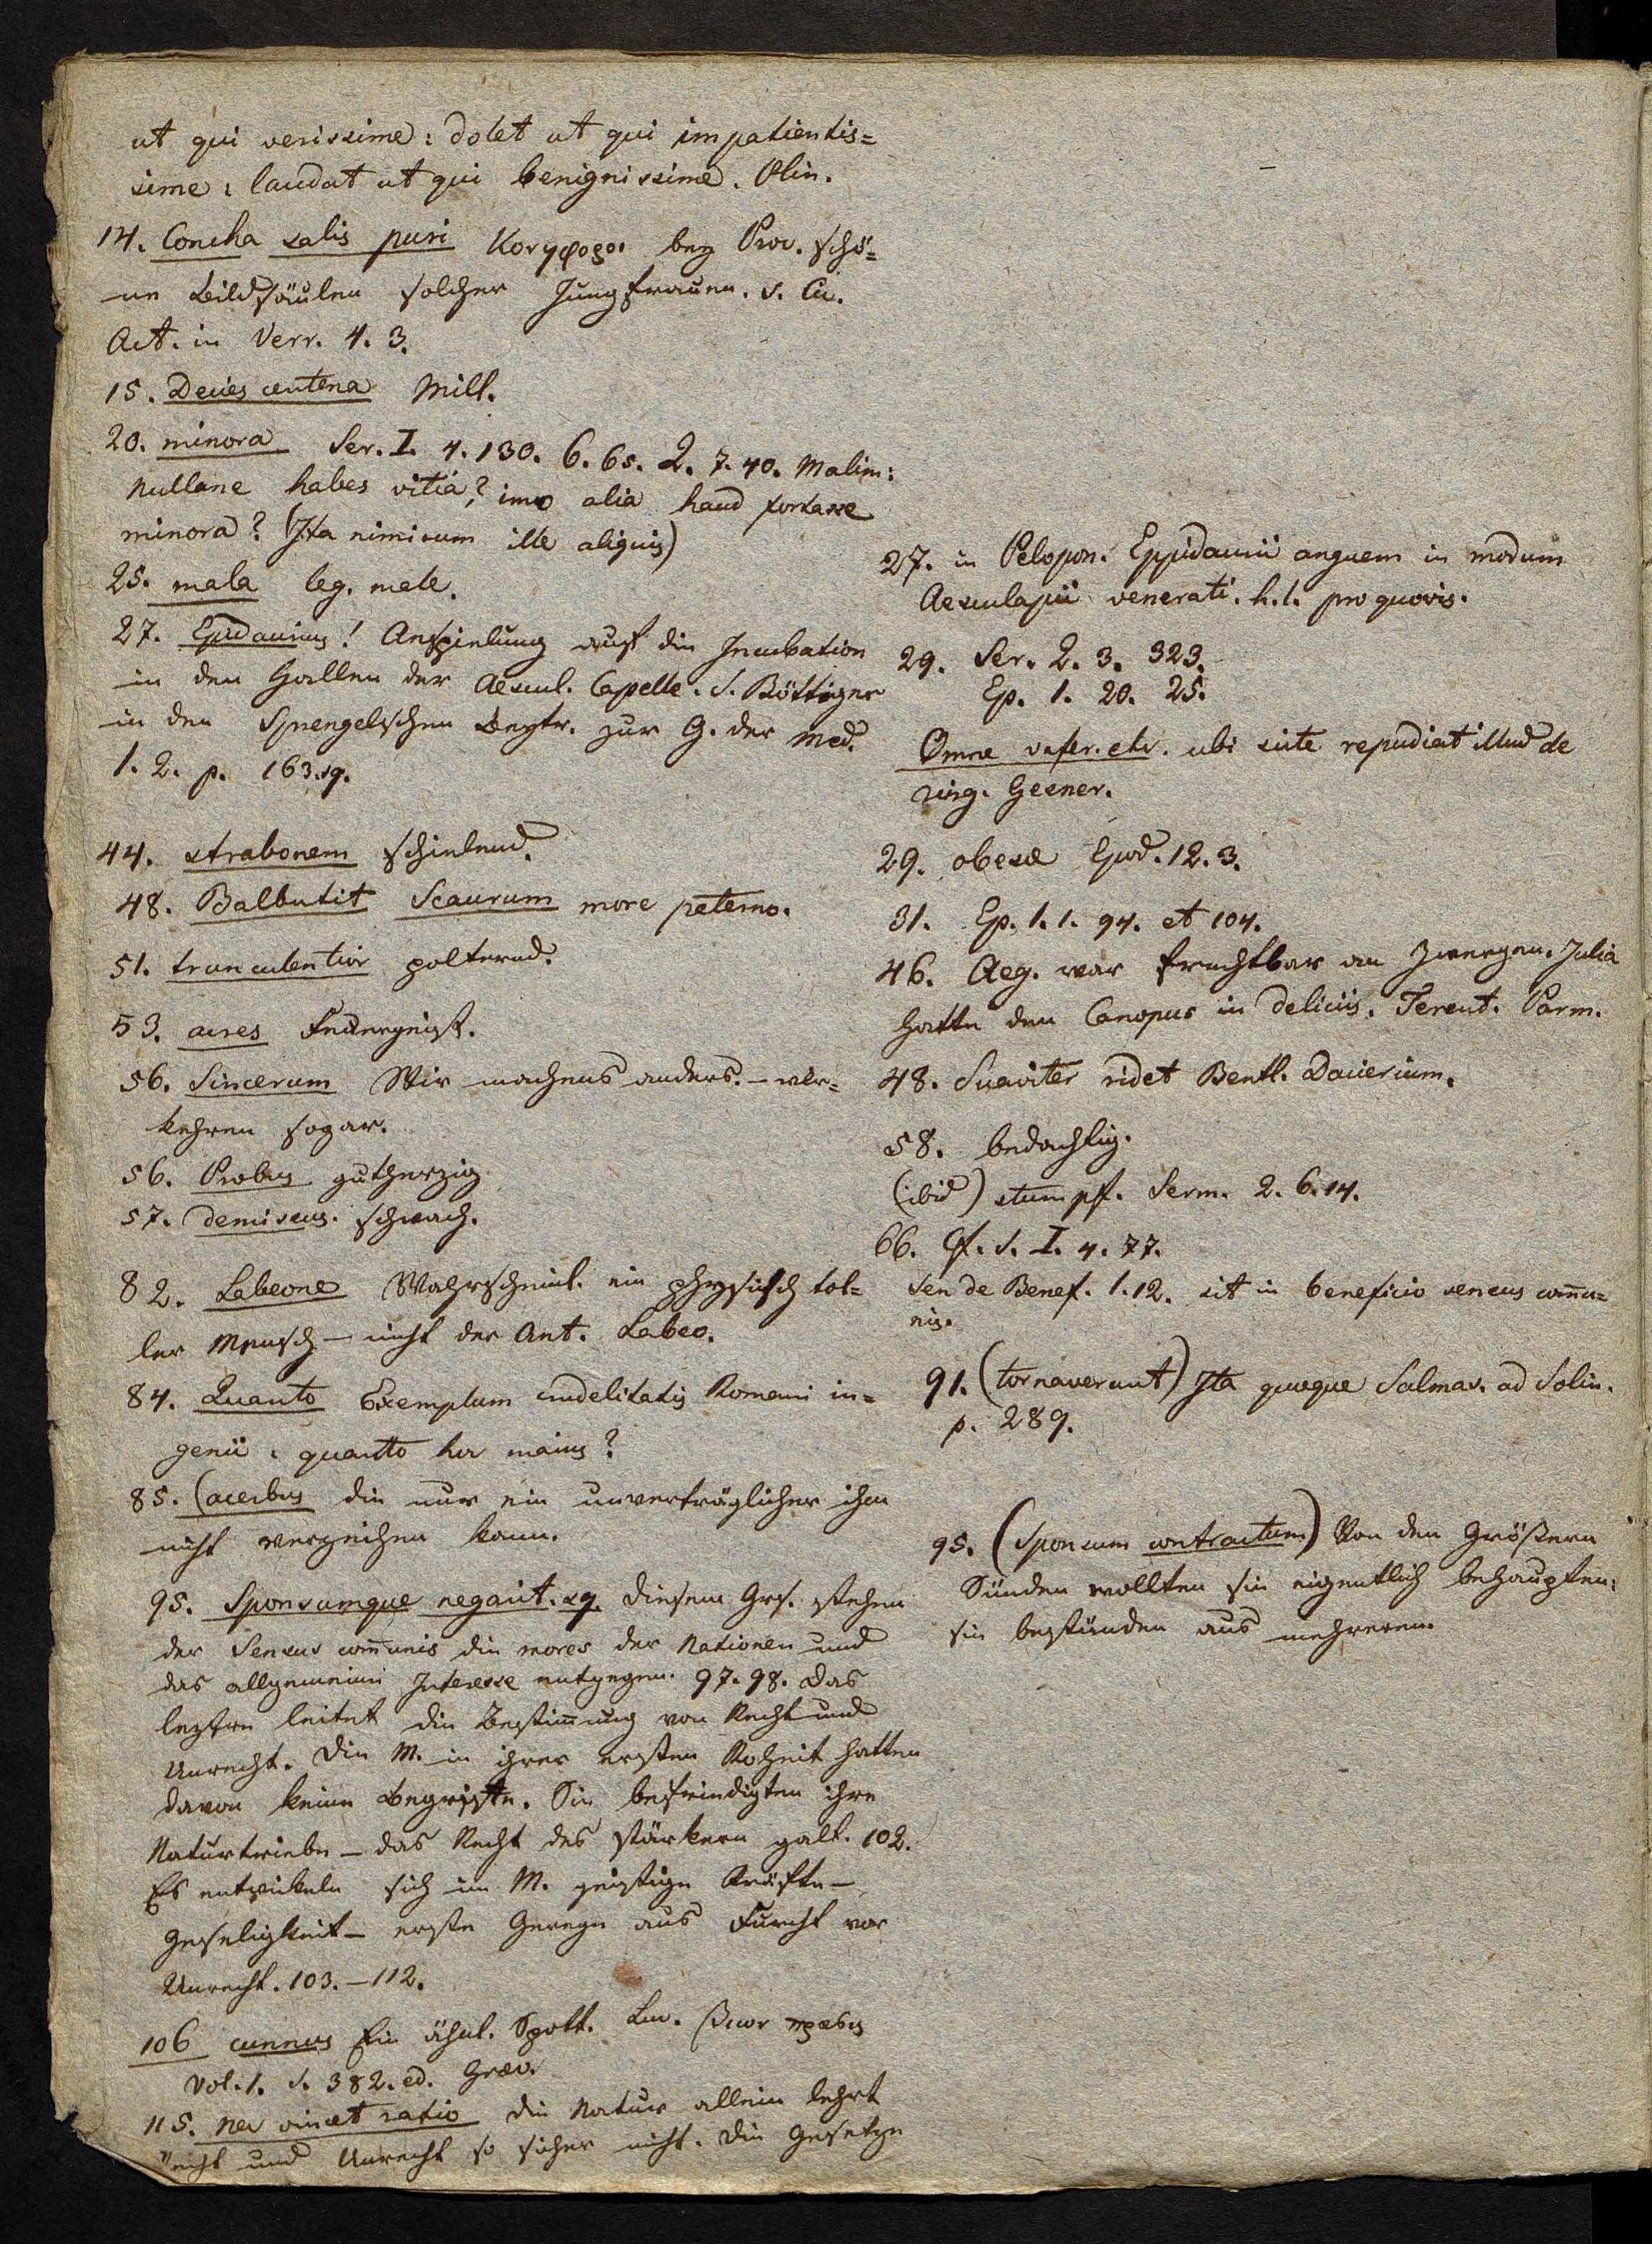 ut qui verissime: dolet ut qui impatientis=
sime: laudat ut qui benignissime. Plin.
14. Concha salis puri Κανηφοροι bey Proc. schö=
ne Bildsäulen solcher Jungfrauen. v. Cic.
Act. in Verr. 4. 3.
15. Decies centena Mill.
20. minora Ser. I. 4. 130. 6. 65. 2. 7. 40. Malim:
nullane habes vitia? imo alia haud fortasse
minora? (Ita nimirum ille aliquis)
25. mala leg. male.
27. Epidaurius! Anspielung auf die Incubation
in den Hallen der Aescul. Capelle. S. Böttiger
in den Sprengelschen Beytr. zur G. der Med.
1. 2. p. 163. sq.
44. strabonem schielend.
48. Balbutit Scaurum more paterno.
51. truculentior polternd.
53. acres Feuergeist.
56. Sincerum Wir machens anders. – ver=
kehren sogar.
56. Probus gutherzig
57. demissus. schwach.
82. Labeone Wahrscheinl. ein physisch tol=
ler Mensch – nicht der Ant. Labeo.
84. Quanto Exemplum crudelitatis Romani in=
genii: quanto hoc maius?
85. (acerbus die nur ein unverträglicher ihm
nicht verzeihen kann.
95. Sponsumque negarit. sq. diesem Grs. stehen
der Sensus com̄unis die mores der Nationen und
das allgemeine Interesse entgegen. 97. 98. Das
leztere leitet die Bestim̄ung von Recht und
Unrecht. Die M. in ihrer ersten Roheit hatten
davon keine Begriffe. Sie befriedigten ihre
Naturtriebe – das Recht des stärkern galt. 102.
Es entwickeln sich im M. geistige Kräfte –
Geseligkeit – erste Geseze aus Furcht vor
Unrecht. 103. – 112.
106 cunnus Ein ähnl. Spott. Luc. βιων πρασις
Vol. 1. S. 382. ed. Graev.
115. nec vincet ratio die Natur allein lehrt
Recht und Unrecht so sicher nicht. Die Gesetze
27. in Pelopon. Epidaurii anguem in modum
Aesculapii venerati. h. l. pro quovis.
29. Ser. 2. 3. 323.
Ep. 1. 20. 25.
Omne vafer. etc. ubi iuste repudiat illud de
ring. Gesner.
29. obesae Epod. 12. 3.
31. Ep. 1. 1. 94. et 104.
46. Aeg. war fruchtbar an Zwergen. Julia
hatte den Canopus in deliciis. Terent. Parm.
48. Suaviter ridet Bentl. Dacierium.
58. bedachtig.
(ibid) stumpf. Serm. 2. 6. 14.
66. Cf. S. I. 4. 77.
Sen de Benef. 1. 12. sit in beneficio sensus com̄u=
nis.
91. (tornaverunt) Ita quoque Salmas. ad Solin.
p. 289.
95. (Sponsum contractum) Von den Größern
Sünden wollten sie eigentlich behaupten:
sie bestünden aus mehreren.